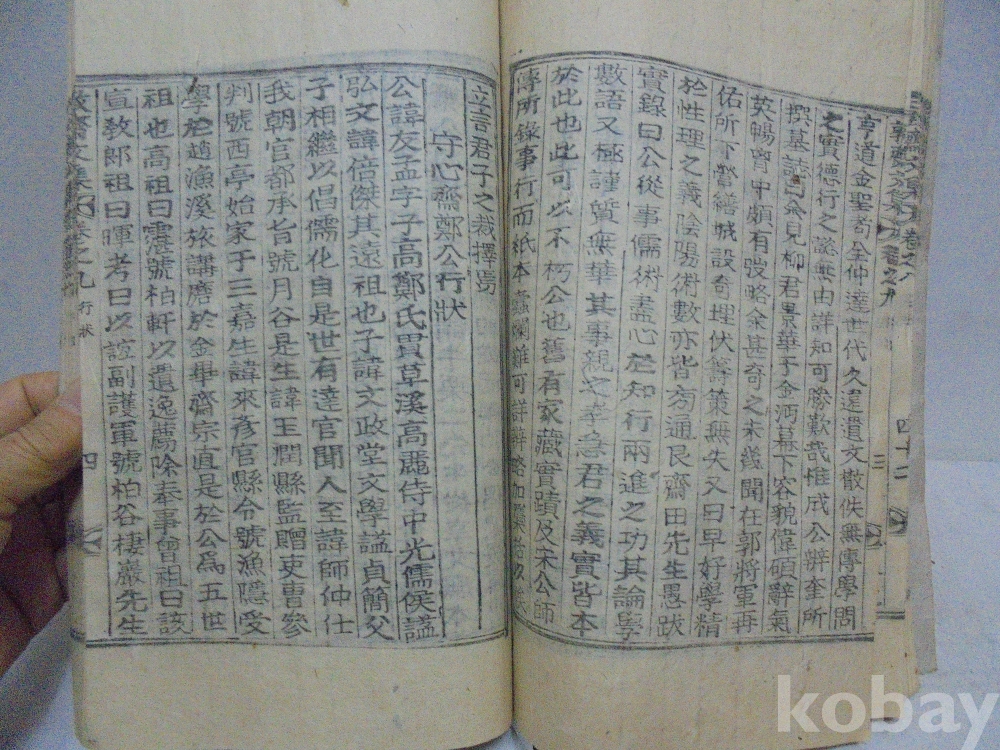 亨道金聖奇全仲達世代久遠遺文散佚無傳學問
之實德行之懿無由詳知可勝歎哉惟成公辨奎所
撰墓誌曰余見柳君景華于金沔幕下容貌偉碩辭氣
英暢胷中頗有弢略余甚奇之未幾聞在郭將軍再
佑所下營繕城設奇埋伏籌策無失又曰早好學精
於性理之義陰陽術數亦皆旁通艮齋田先生愚跋
實錄曰公從事儒術盡心於知行兩進之功其論學
數語又極謹質無華其事親之孝急君之義實皆本
於此也此可以不朽公也舊有家藏實蹟及宋公師
傳所錄事行而紙本蠹爛難可詳辨略加
立言君子之裁擇焉
守心齋鄭公行狀
公諱友孟字子高鄭氏貫草溪高麗侍中光儒侯諡
弘文諱倍傑其遠祖也子諱文政堂文學諡貞簡父
子相繼以倡儒化自是世有達官聞人至諱師仲仕
我朝官都承旨號月谷是生諱王潤縣監贈吏曹參
判號西亭始家于三嘉生諱來彥官縣令號漁隱受
學於趙漁溪旅講磨於金畢齋宗直是於公爲五世
祖也高祖曰霆號柏軒以遺逸薦除奉事曾祖曰該
宣敎郎祖曰暉考曰以誼副護軍號柏谷棲巖先生
卷之九
行狀
四
卷之八
四十二
卷之九
三
kobay